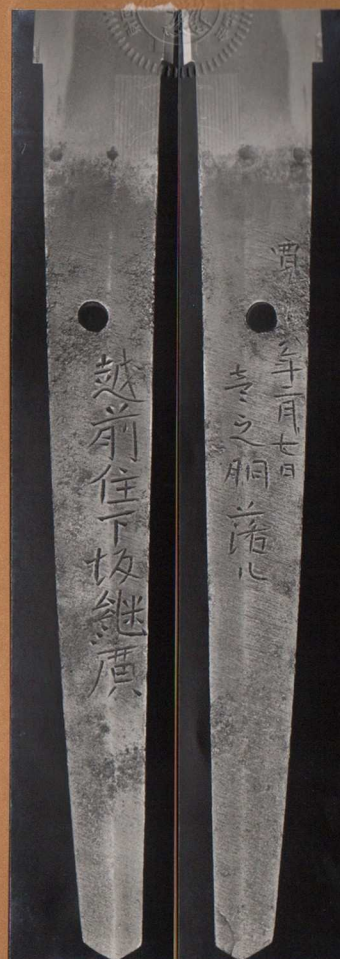 越前住下坂継廣
寛 年二月七日
壱之胴落